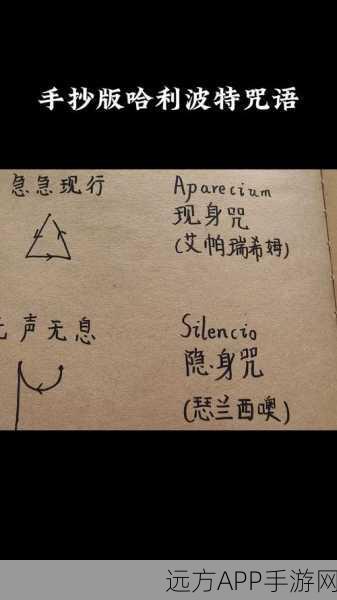 手抄版哈利波特咒语
急急现行
Aparecium
现身咒
(艾帕瑞希姆)
声无息
Silencio
隐身咒
(瑟兰西噢)
远方APP手游网